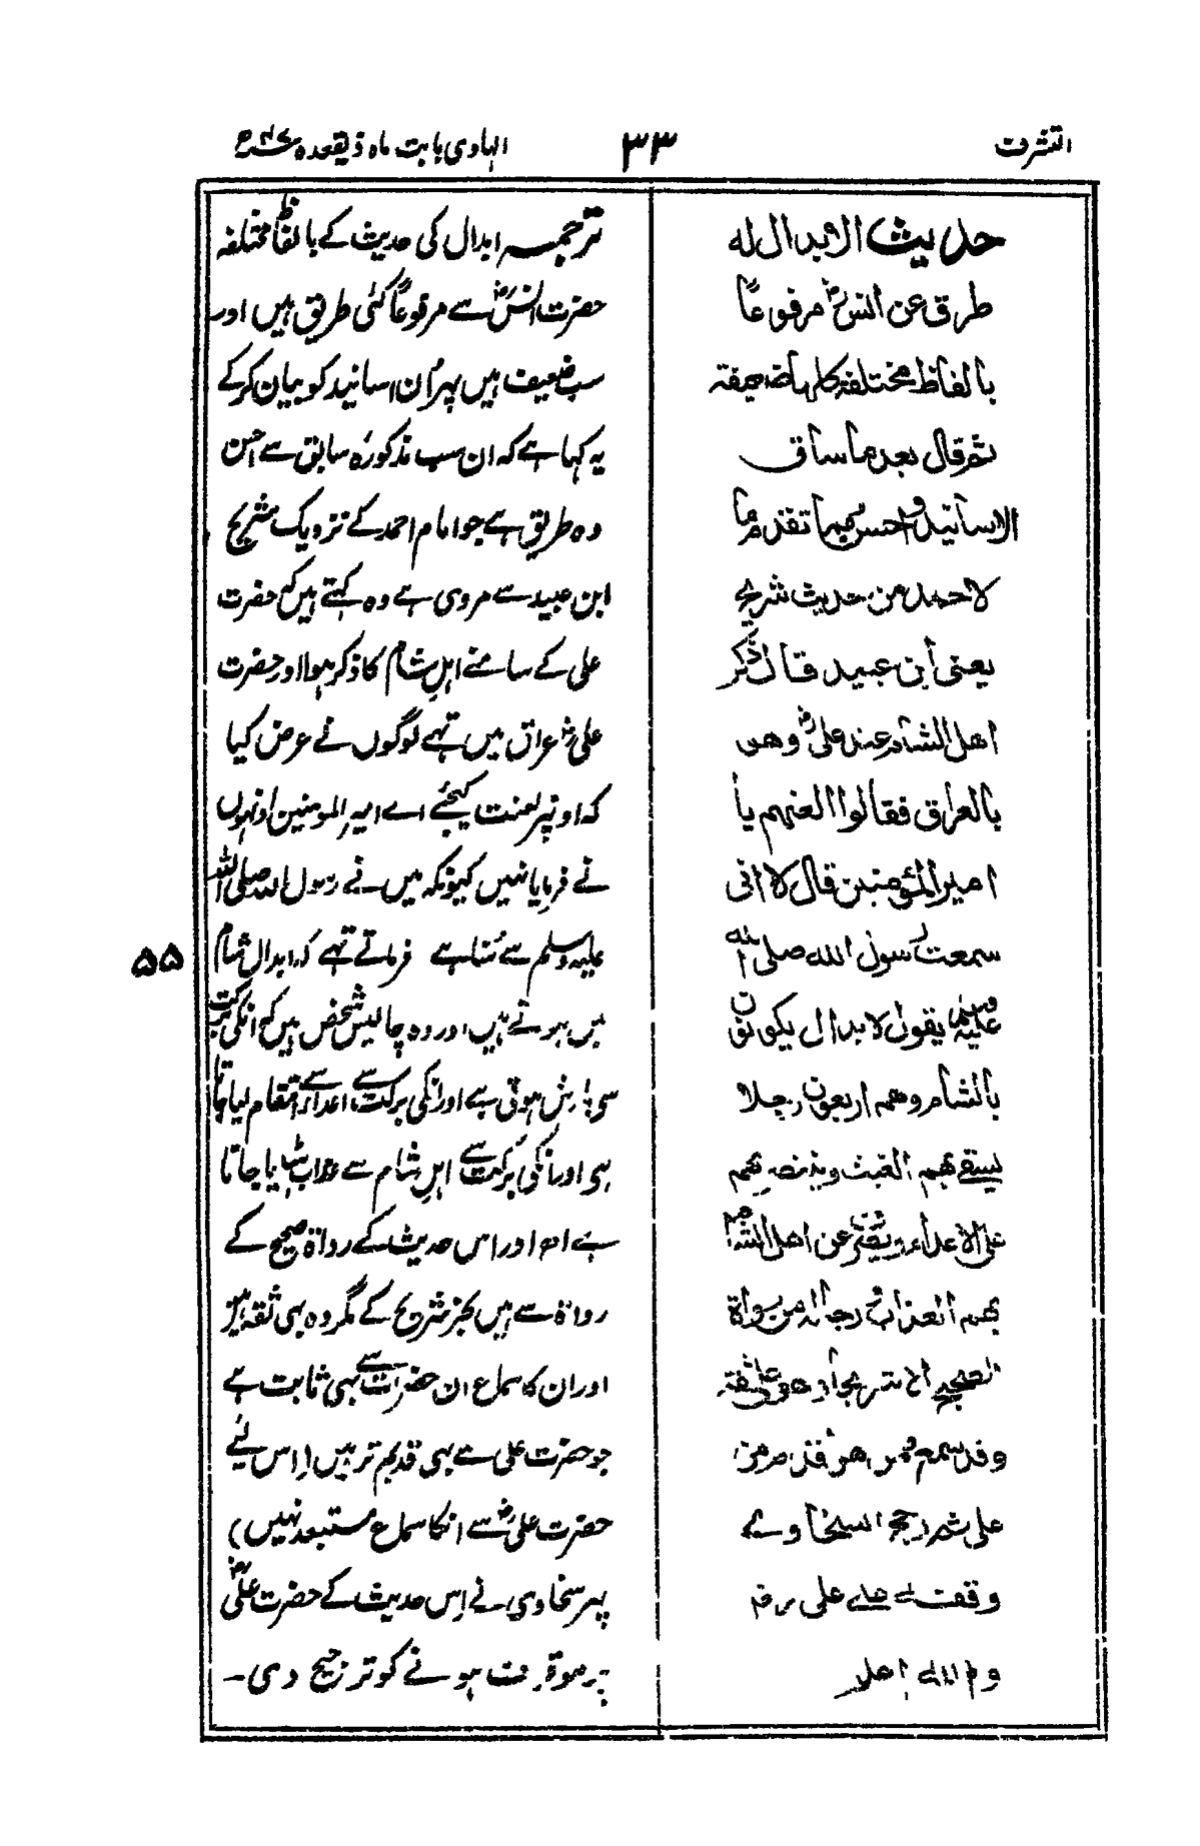 التشرف
۳۳
الہادی بابت ماہ ذیقعدہ
حدیث الابدال لہ
طرق عن انس رض مرفوعاً
بالفاظ مختلفة کلہا ضعیفة
ثم قال بعد ما ساق
الاسانید واحسن مما تقدم ما
لاحمد من حدیث شریح
یعنی ابن عبید قال ذکر
اھل الشام عند علی رض وھو
بالعراق فقالوا العنہم یا
امیر المؤمنین قال لا انی
سمعت رسول اللہ صلی اللہ
علیہ وسلم یقول الابدال یکونون
بالشام وھم اربعون رجلا
یسقی بہم الغیث وینتصر بہم
علی الاعداء ویصرف عن اھل الشام
بہم العذاب رجالہ من رواة
الصحیح الا شریحا وھو ثقة
وقد سمع ممن ھو اقدم من
علی ثم رجح السخاوے
وقفہ علے علی رض
واللہ اعلم
ترجمہ ابدال کی حدیث کے بالفاظ مختلفہ
حضرت انس رض سے مرفوعاً کئی طریق ہیں اور
سب ضعیف ہیں پہر ان اسانید کو بیان کر کے
یہ کہا ہے کہ ان سب مذکورہ سابق سے احسن
وہ طریق ہے جو امام احمد کے نزدیک شریح
ابن عبید سے مروی ہے وہ کہتے ہیں کہ حضرت
علی کے سامنے اہلِ شام کا ذکر ہوا اور حضرت
علی رض عراق میں تہے لوگوں نے عرض کیا
کہ اونپر لعنت کیجئے اے امیر المومنین اونہوں
نے فرمایا نہیں کیونکہ میں نے رسول اللہ صلی اللہ
علیہ وسلم سے سُنا ہے فرماتے تہے کہ ابدال شام
میں ہوتے ہیں اور وہ چالیس شخص ہیں کہ انکی برکت
سی بارش ہوتی ہے اور انکی برکت سے اعداء سے انتقام لیا جاتا
ہی اور انکی برکت سے اہلِ شام سے عذاب ہٹایا جاتا
ہے اھ اور اس حدیث کے رواۃ صحیح کے
رواۃ سے ہیں بجز شریح کے مگر وہ بہی ثقہ ہیں
اور ان کا سماع ان حضرات سے بہی ثابت ہے
جو حضرت علی سے بہی قدیم تر ہیں (اس لیے
حضرت علی رض سے انکا سماع مستبعد نہیں)
پہر سخاوی نے اِس حدیث کے حضرت علی رض
پر موقوف ہونے کو ترجیح دی۔
۵۵